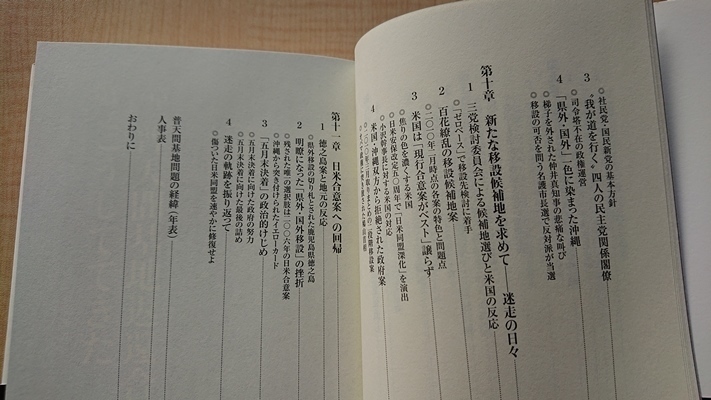 ◎社民党・国民新党の基本方針
3 "我が道を行く"四人の民主党関係閣僚
◎司令塔不在の政権運営
4 「県外・国外」一色に染まった沖縄
◎梯子を外された仲井真知事の悲痛な叫び
◎移設の可否を問う名護市長選で反対派が当選
第十章 新たな移設候補地を求めて――迷走の日々
1 三党検討委員会による候補地選びと米国の反応
◎「ゼロベース」で移設先検討に着手
2 百花繚乱の移設候補地案
◎二〇一〇年二月時点の各案の特色と問題点
3 米国は「現行合意案がベスト」譲らず
◎焦りの色を濃くする米国
◎日米安保改定五〇周年で「日米同盟深化」を演出
◎小沢幹事長に対する米国の対応
4 米国・沖縄双方から拒絶された政府案
第十一章 日米合意案への回帰
1 徳之島案と地元の反応
◎県外移設の切り札とされた鹿児島県徳之島
2 明瞭になった「県外・国外移設」の挫折
◎残された唯一の選択肢は二〇〇六年の日米合意案
◎沖縄から突き付けられたイエローカード
3 「五月末決着」の政治的けじめ
◎五月末決着に向けた政府の努力
◎五月末決着に向けた最後の詰め
4 迷走の軌跡を振り返って
◎傷ついた日米同盟を速やかに修復せよ
普天間基地問題の経緯(年表)
人事表
おわりに